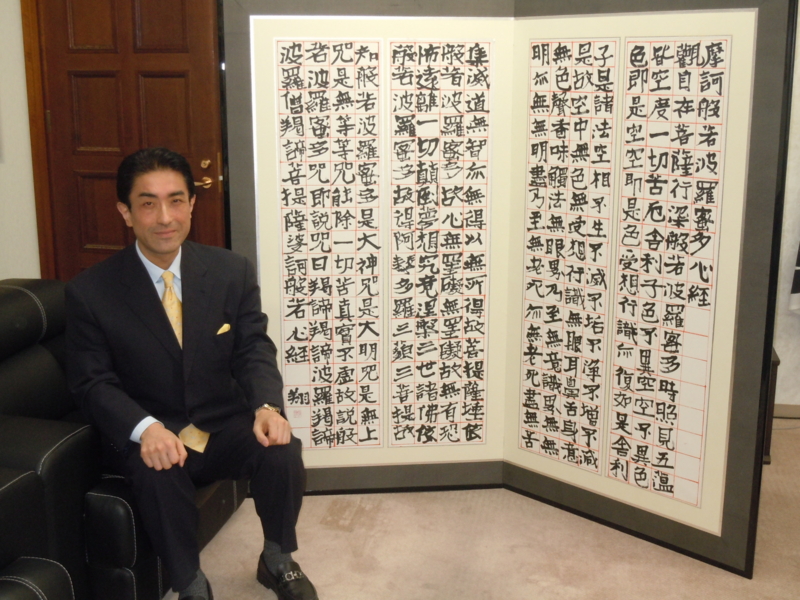 摩訶般若波羅蜜多心経
觀自在菩薩行深般若波羅蜜多時照見五蘊
皆空度一切苦厄舎利子色不異空空不異色
色即是空空即是色受想行識亦復如是舎利
子是諸法空相不生不滅不垢不浄不增不減
是故空中無色無受想行識無眼耳鼻舌身意
無色聲香味觸法無眼界乃至無意識界無無
明亦無無明盡乃至無老死亦無老死盡無苦
集滅道無智亦無得以無所得故菩提薩埵依
般若波羅蜜多故心無罣礙無罣礙故無有恐
怖遠離一切顛倒夢想究竟涅槃三世諸佛依
般若波羅蜜多故得阿耨多羅三藐三菩提故
知般若波羅蜜多是大神咒是大明咒是無上
咒是無等等咒能除一切苦真實不虚故説般
若波羅蜜多咒即説咒曰羯諦羯諦波羅羯諦
波羅僧羯諦菩提薩婆訶般若心経 翔